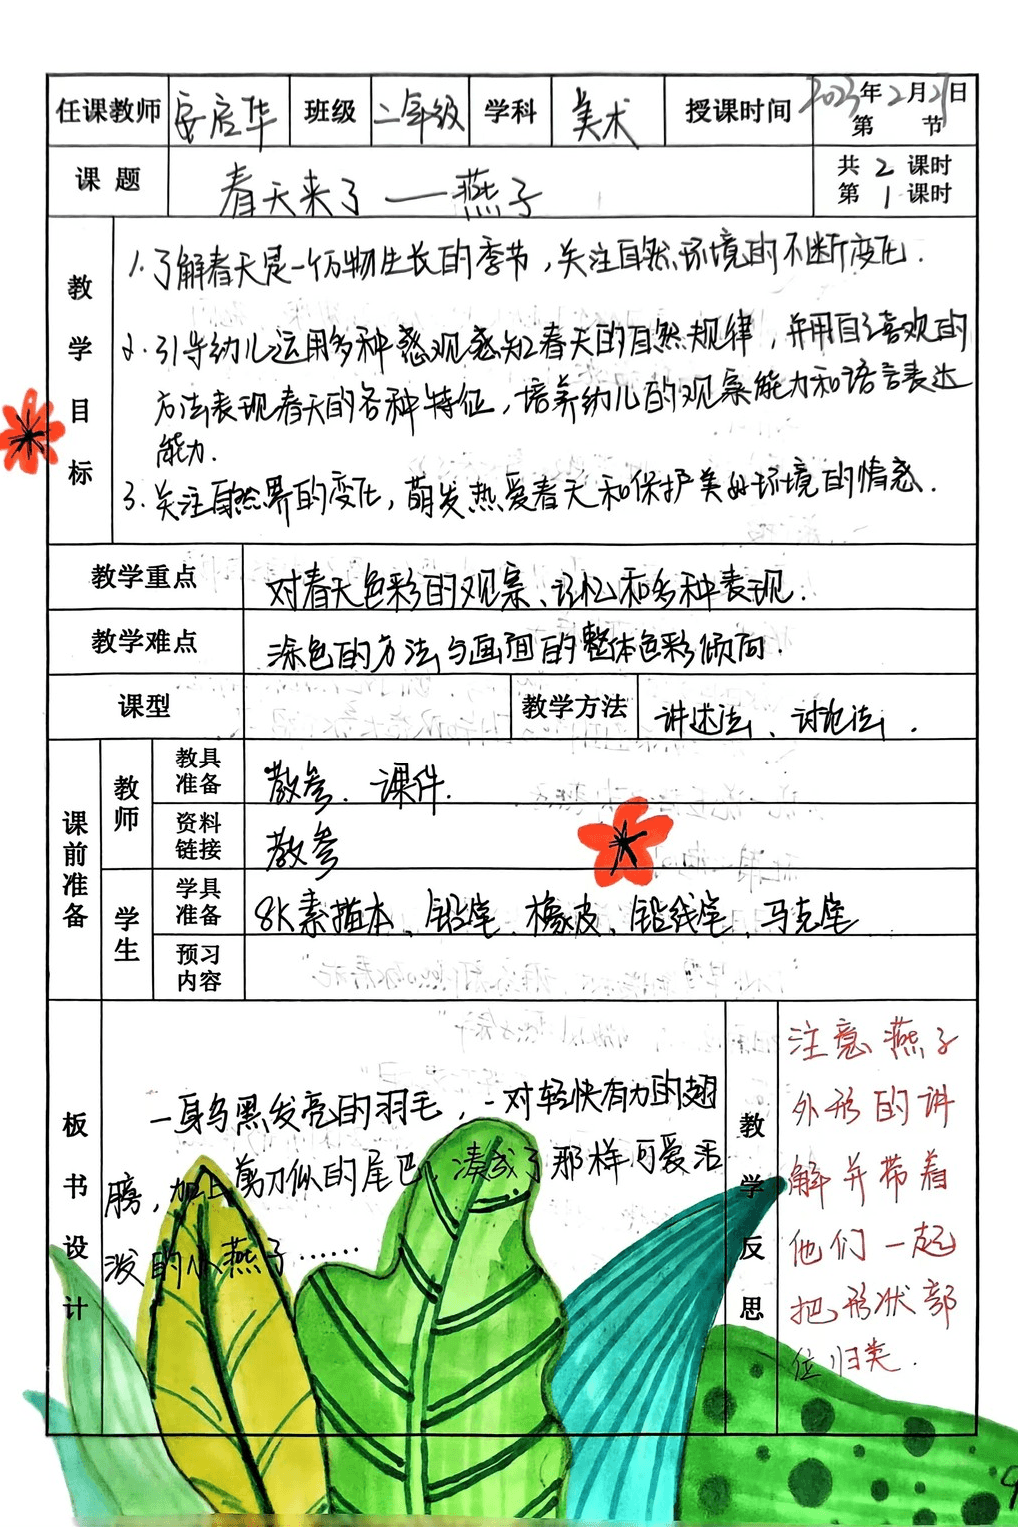 任课教师 安启华 班级 二年级 学科 美术 授课时间 2023年2月21日
第 节
课题 春天来了——燕子 共2课时
第1课时
教学目标
1.了解春天是一个万物生长的季节,关注自然环境的不断变化.
2.引导幼儿运用多种感观感知春天的自然规律,并用自己喜欢的
方法表现春天的各种特征,培养幼儿的观察能力和语言表达
能力.
3.关注自然界的变化,萌发热爱春天和保护美好环境的情感.
教学重点 对春天色彩的观察、记忆和多种表现.
教学难点 涂色的方法与画面的整体色彩倾向.
课型 教学方法 讲述法、讨论法.
课前准备
教师
教具准备 教参、课件.
资料链接 教参
学生
学具准备 8K素描本、铅笔、橡皮、铅线笔、马克笔
预习内容
板书设计
一身乌黑发亮的羽毛,一对轻快有力的翅
膀,加上剪刀似的尾巴,凑成了那样可爱活
泼的小燕子……
教学反思
注意燕子
外形的讲
解并带着
他们一起
把形状部
位归类.